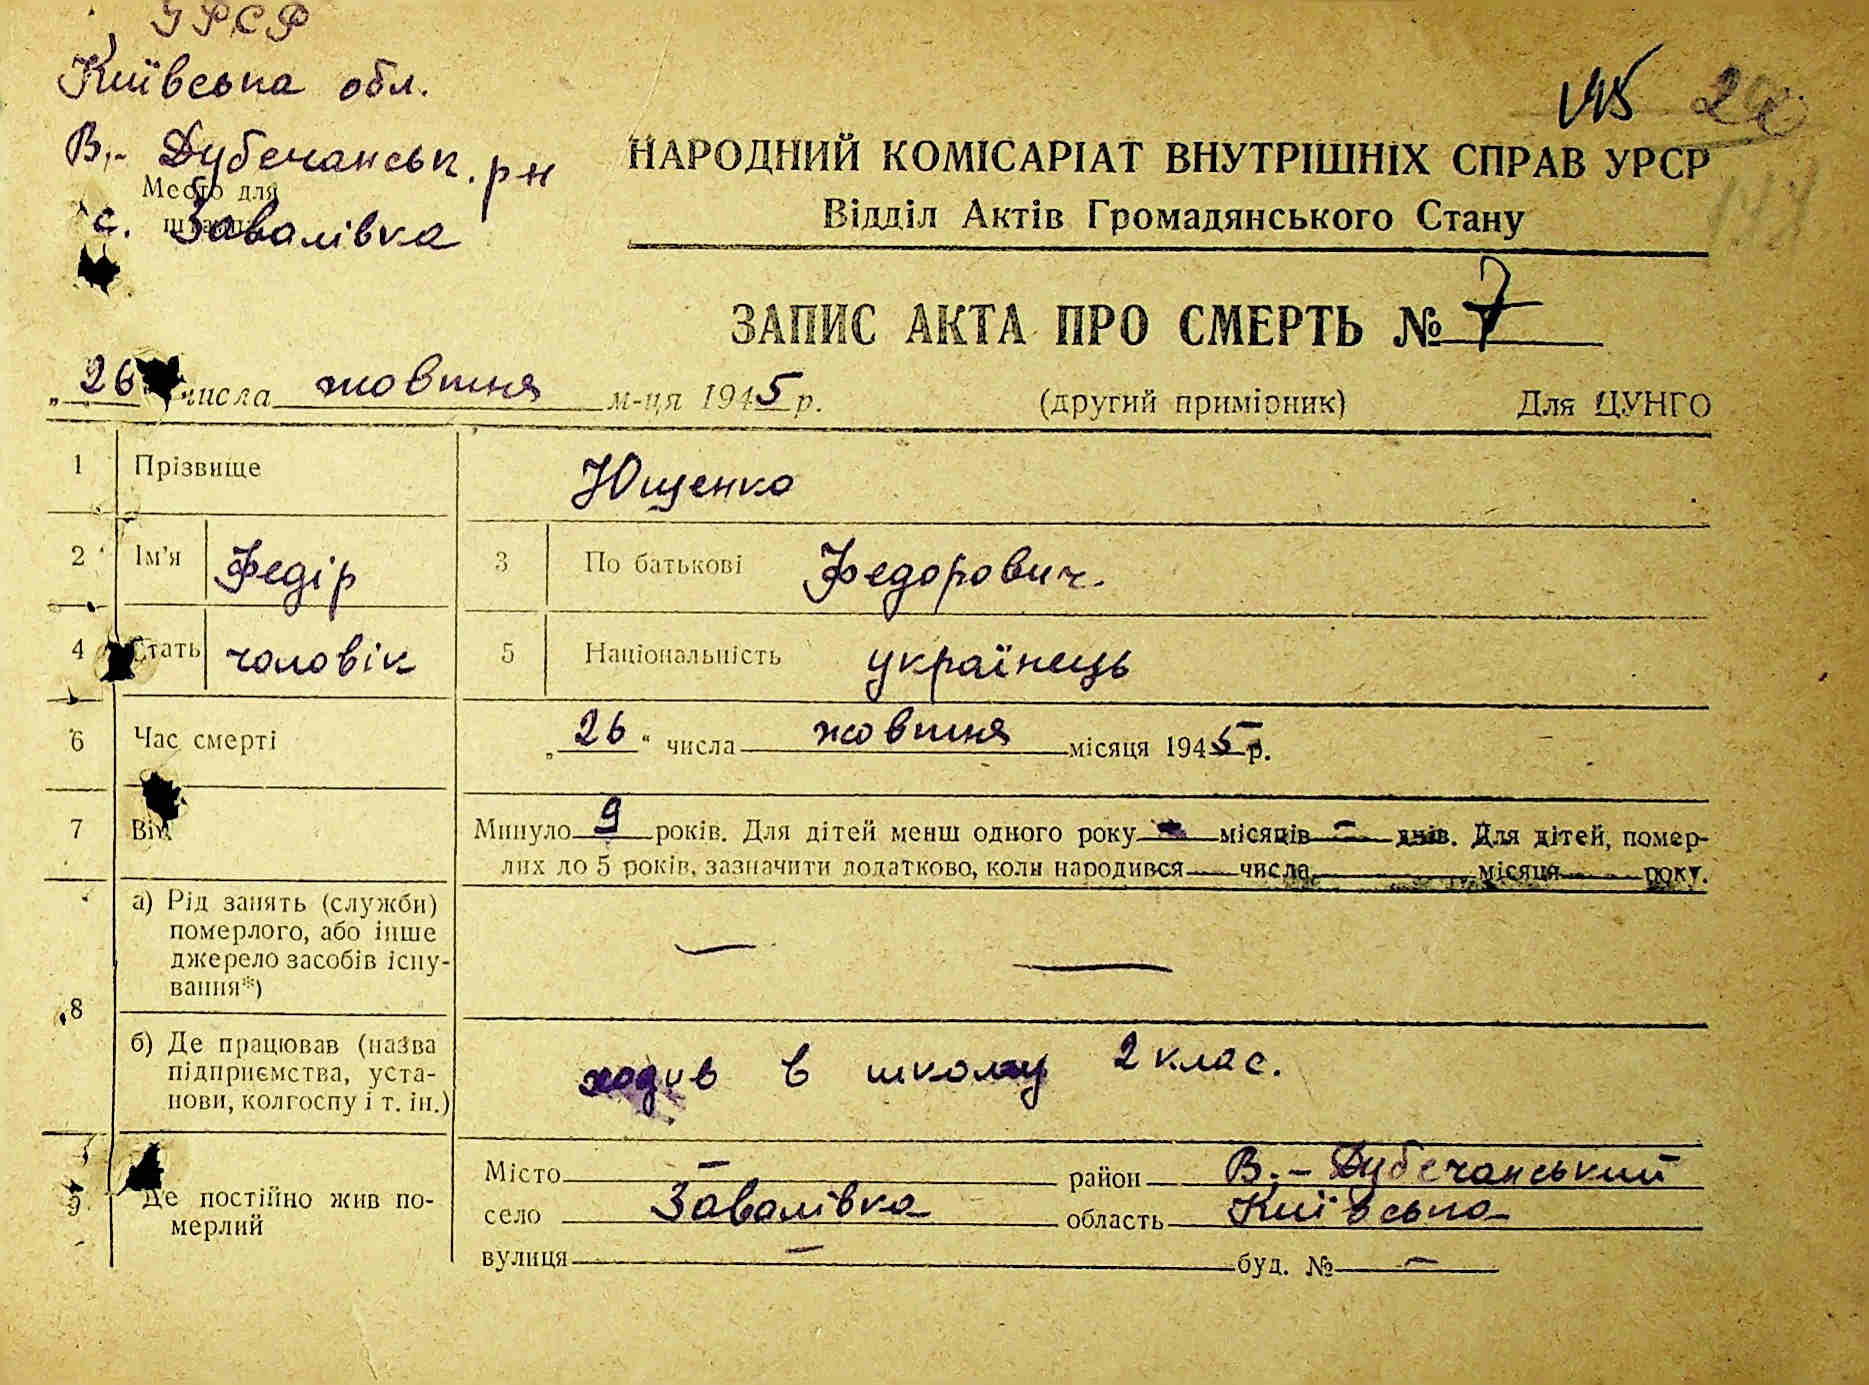 УРСР
Київська обл.
В.- Дубечанськ. рн
Место для
с. Завалівка
145
НАРОДНИЙ КОМІСАРІАТ ВНУТРІШНІХ СПРАВ УРСР
Відділ Актів Громадянського Стану
ЗАПИС АКТА ПРО СМЕРТЬ № 7
„26" числа жовтня м-ця 1945 р. (другий примірник) Для ЦУНГО
1 Прізвище Ющенко
2 Ім'я Федір 3 По батькові Федорович.
4 Стать чоловік 5 Національність українець
6 Час смерті „26" числа жовтня місяця 1945 р.
7 Вік Минуло 9 років. Для дітей менш одного року — місяців — днів. Для дітей, помер-
лих до 5 років, зазначити додатково, коли народився — числа — місяця — року.
8 а) Рід занять (служби)
померлого, або інше
джерело засобів існу-
вання*)
— —
б) Де працював (назва
підприємства, уста-
нови, колгоспу і т. ін.)
ходив в школу 2 клас.
9 Де постійно жив по-
мерлий
Місто — район В.- Дубечанський
село Завалівка область Київська
вулиця — буд. № —